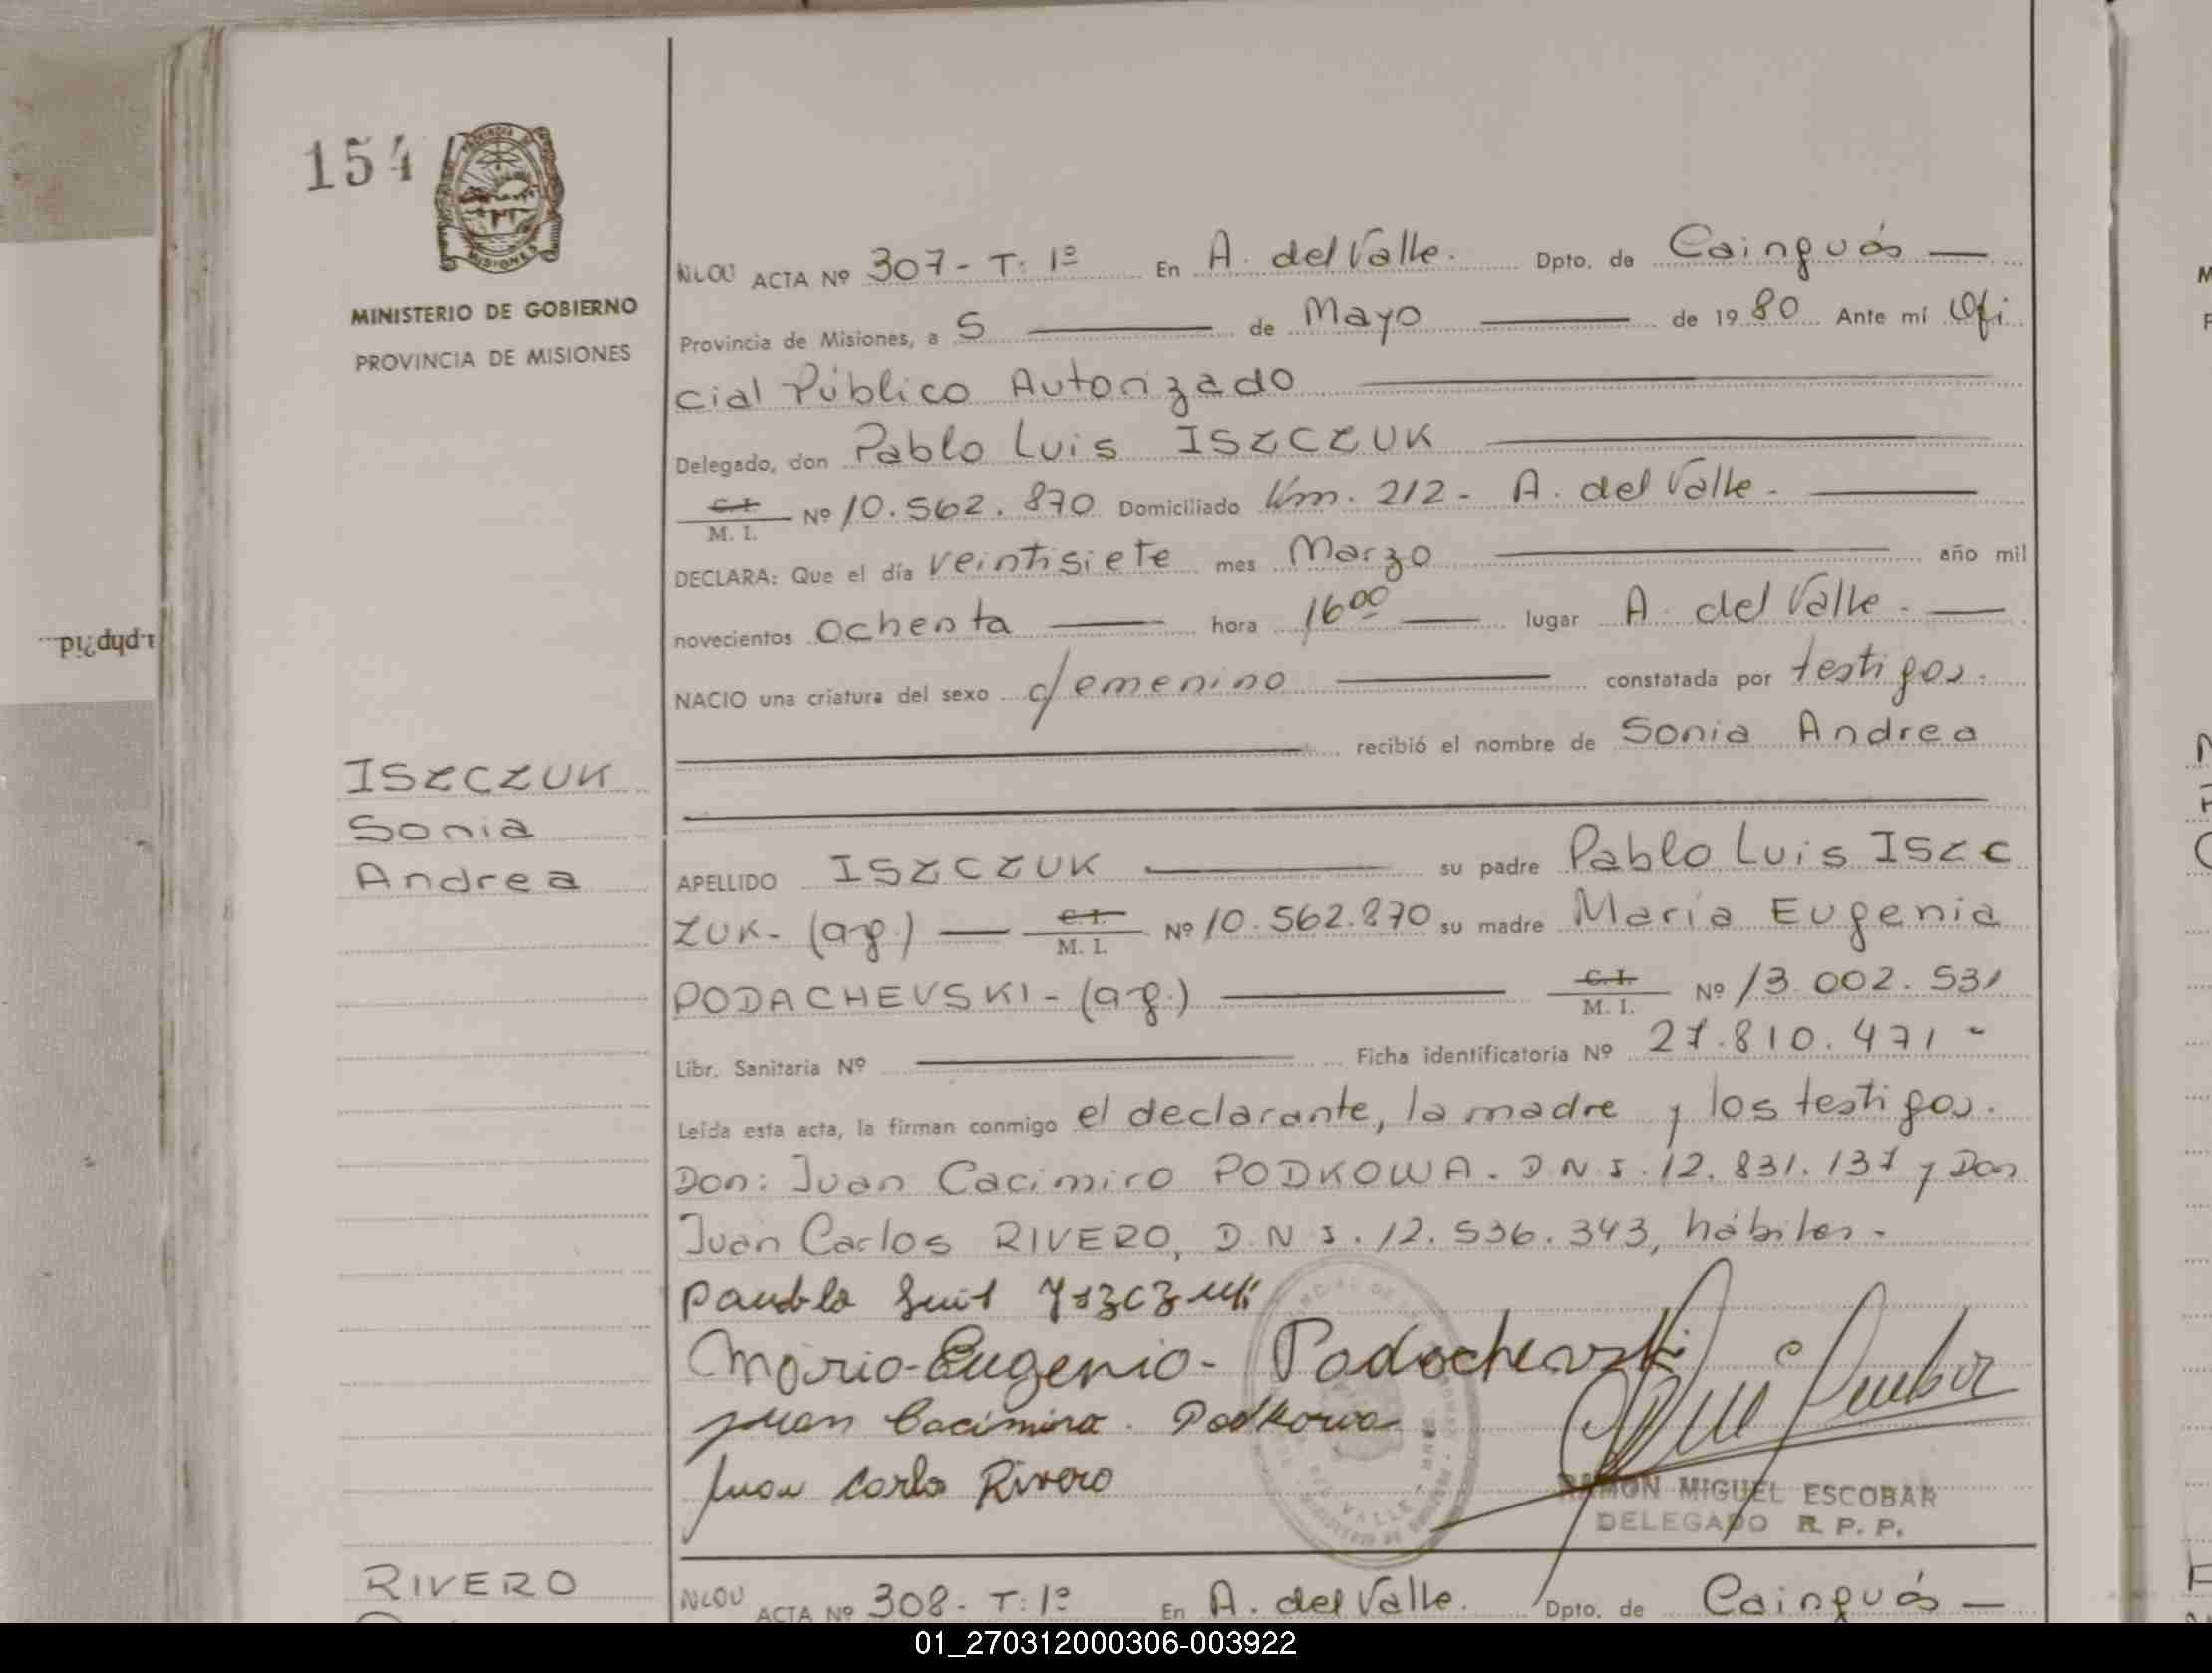 154
MISIONES
MINISTERIO DE GOBIERNO
PROVINCIA DE MISIONES
ACTA Nº 307 - T: 1º En A. del Valle. Dpto. de Cainguás —
Provincia de Misiones, a 5 — de Mayo — de 1980 Ante mí Ofi
cial Público Autorizado —
Delegado, don Pablo Luis ISZCZUK —
C.I. M. I. Nº 10.562.870 Domiciliado Km. 212 - A. del Valle - —
DECLARA: Que el día veintisiete mes Marzo — año mil
novecientos ochenta — hora 16 00 — lugar A. del Valle. —
NACIO una criatura del sexo femenino — constatada por testigos.
— recibió el nombre de Sonia Andrea
ISZCZUK
Sonia
Andrea
APELLIDO ISZCZUK — su padre Pablo Luis ISZC
ZUK - (ag.) — C.I. M. I. Nº 10.562.870 su madre María Eugenia
PODACHEVSKI - (ag.) — C.I. M. I. Nº 13.002.531
Libr. Sanitaria Nº — Ficha identificatoria Nº 27.810.471 -
Leída esta acta, la firman conmigo el declarante, la madre y los testigos.
Don: Juan Cacimiro PODKOWA. D N I. 12.831.137 y Don
Juan Carlos RIVERO, D. N I. 12.536.343, hábiles -
Paublo Luis
Maria-Eugenia- Podachevski
Juan Cacimiro. Podkowa
Juan Carlo Rivero
RAMON MIGUEL ESCOBAR
DELEGADO R. P. P.
RIVERO
ACTA Nº 308 - T: 1º En A. del Valle. Dpto. de Cainguás —
01_270312000306-003922